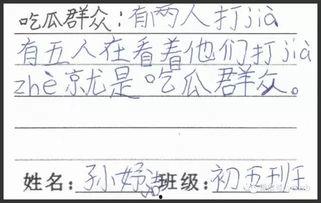 吃瓜群众:有两人打jià
有五人在看着他们打jià
zhè就是吃瓜群众。
姓名:孙妤涵班级:初五班